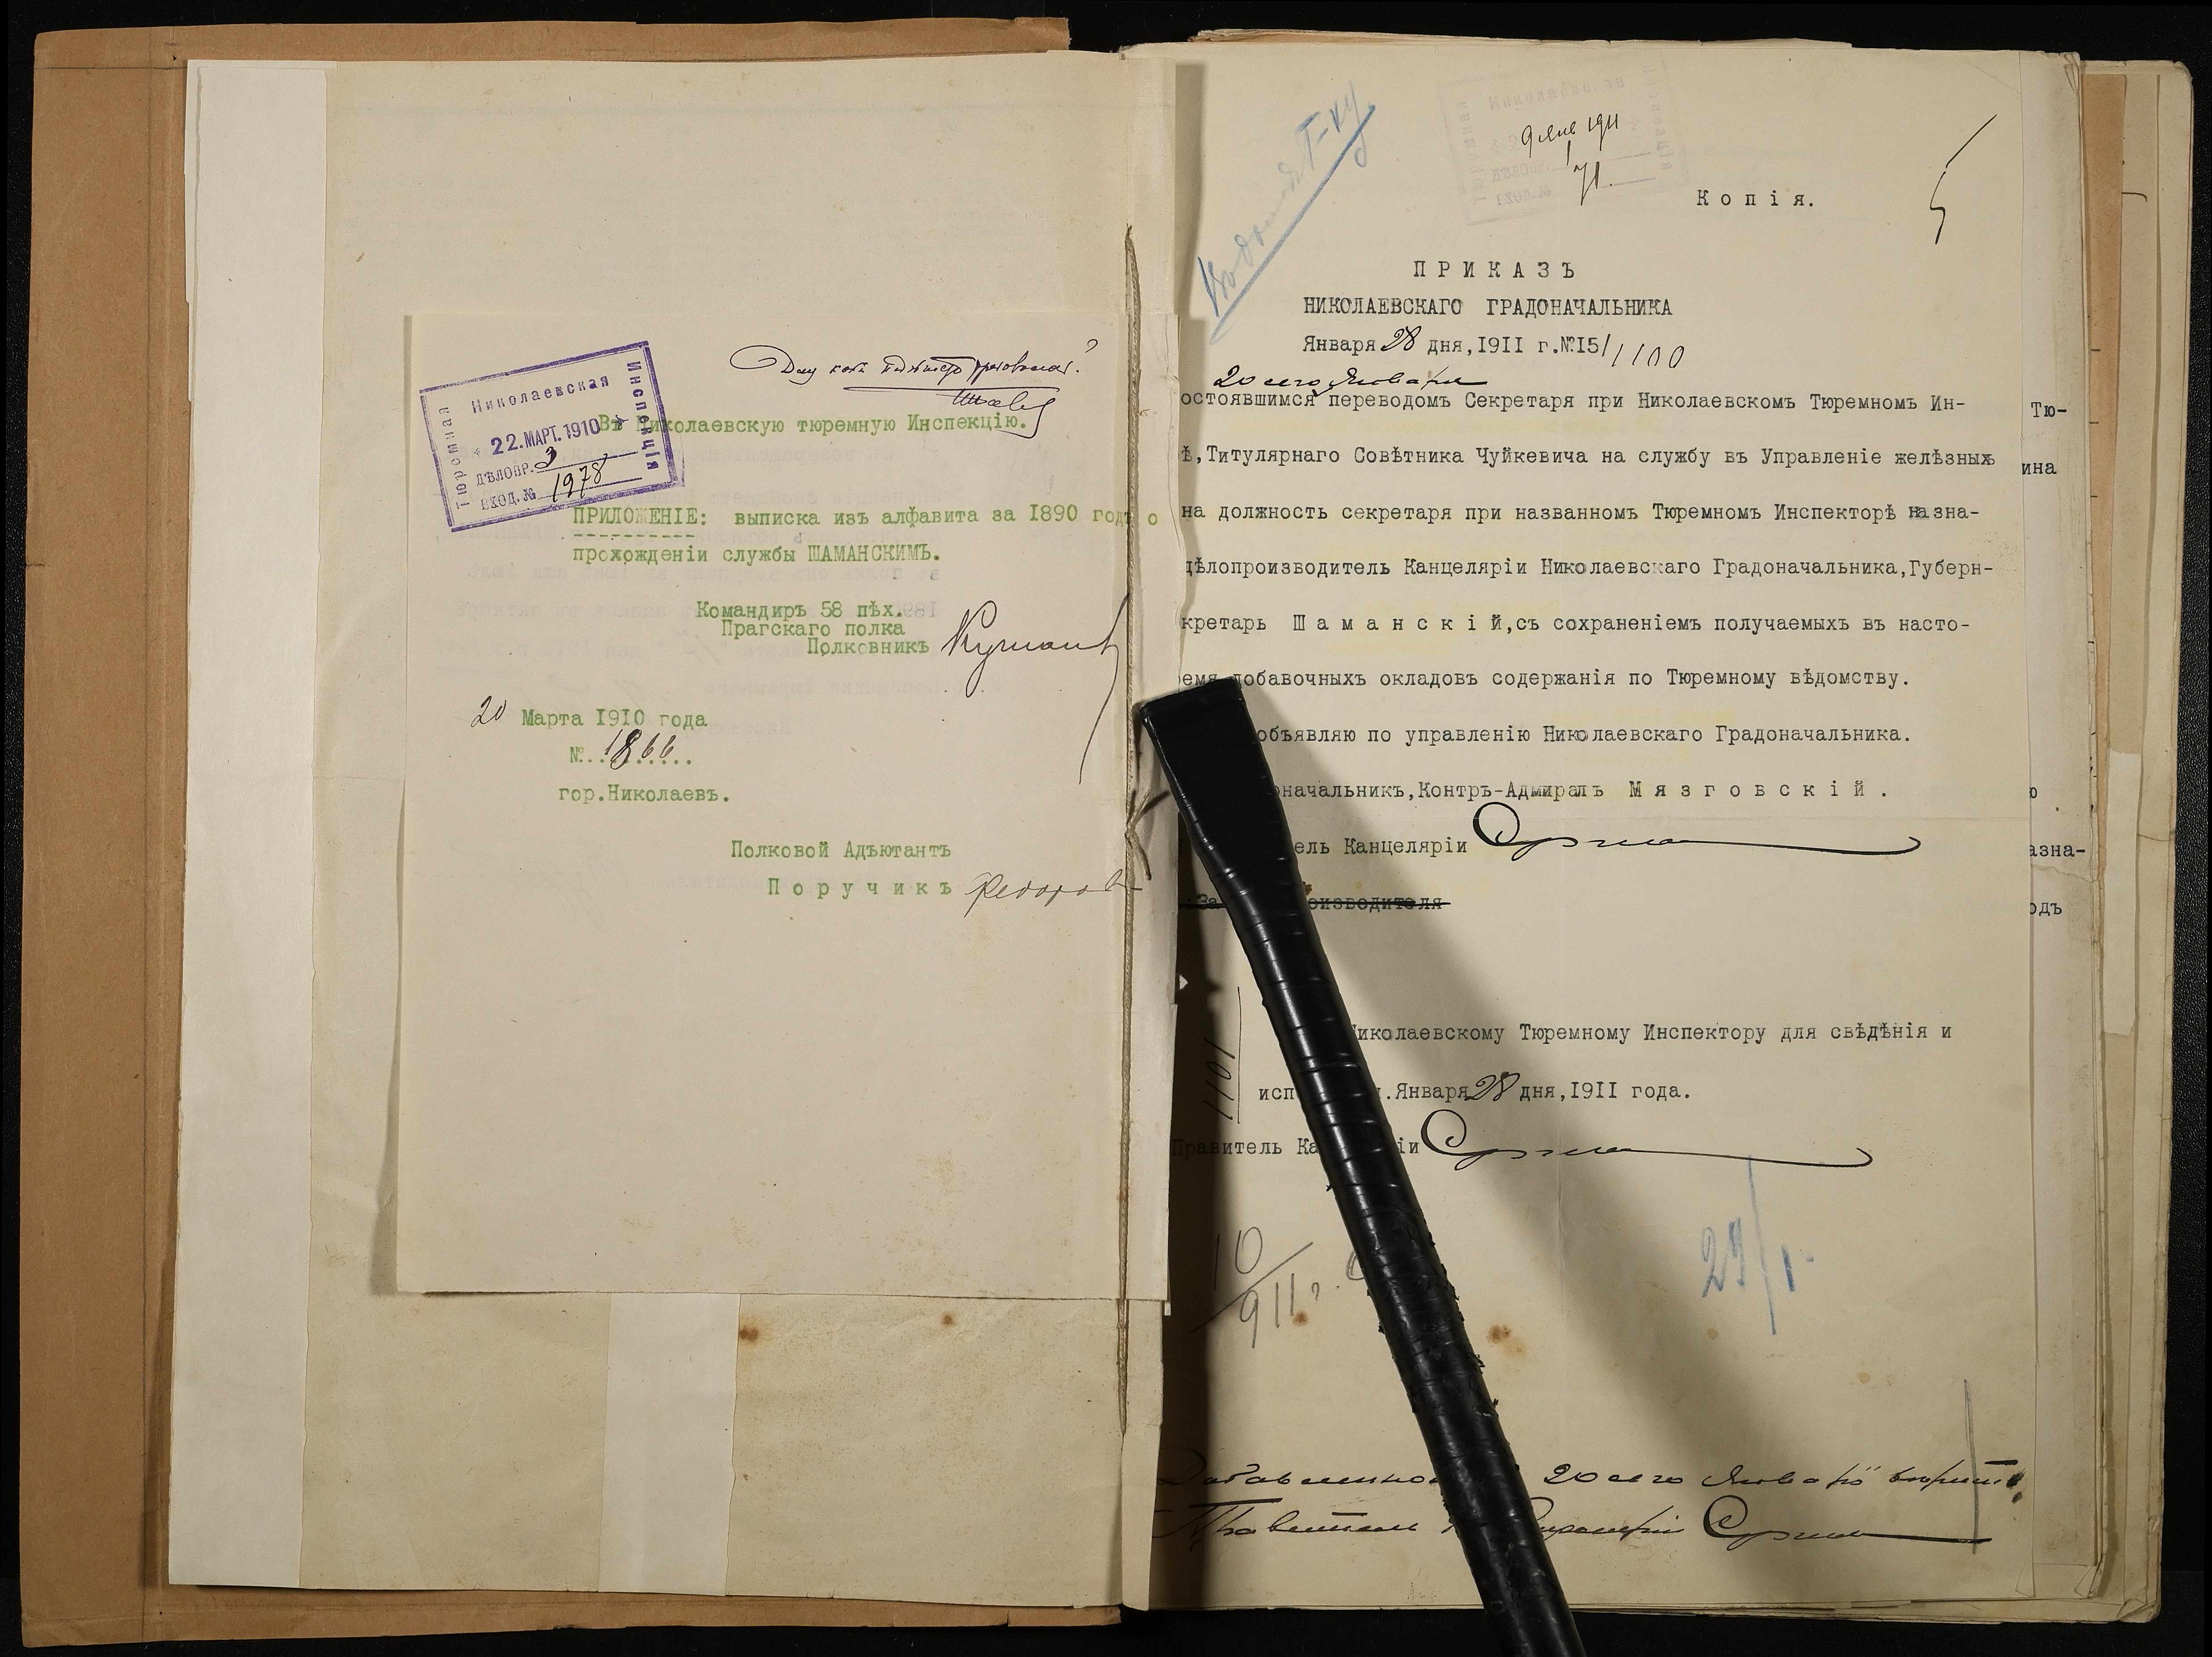 Николаевская
Тюремная
Инспекція
22. МАРТ. 1910
ДѢЛОПР. 3
ВХОД. № 1978
Въ Николаевскую тюремную Инспекцію.
ПРИЛОЖЕНІЕ: выписка изъ алфавита за 1890 годъ о
прохожденіи службы ШАМАНСКИМЪ.
Командиръ 58 пѣх.
Прагскаго полка
Полковникъ
20 Марта 1910 года
№..1866.....
гор.Николаевъ.
Полковой Адъютантъ
Поручикъ Федоровъ
Николаевская
9 Янв 1911
71.
Копія.
5
ПРИКАЗЪ
НИКОЛАЕВСКАГО ГРАДОНАЧАЛЬНИКА
Января 28 дня, 1911 г.№15/1100
20 сего Января
остоявшимся переводомъ Секретаря при Николаевскомъ Тюремномъ Ин-
ѣ, Титулярнаго Совѣтника Чуйкевича на службу въ Управленіе желѣзныхъ
на должность секретаря при названномъ Тюремномъ Инспекторѣ назна-
дѣлопроизводитель Канцеляріи Николаевскаго Градоначальника, Губерн-
кретарь Шаманскій, съ сохраненіемъ получаемыхъ въ насто-
емя добавочныхъ окладовъ содержанія по Тюремному вѣдомству.
объявляю по управленію Николаевскаго Градоначальника.
оначальникъ, Контръ-Адмиралъ Мязговскій.
ель Канцеляріи
За оизводителя
Николаевскому Тюремному Инспектору для свѣдѣнія и
исп .Января 28 дня, 1911 года.
1101
Правитель Ка іи
10
911 г.
29/1
20 сего Января
Правитель
Тю-
ина
ю
азна-
одъ